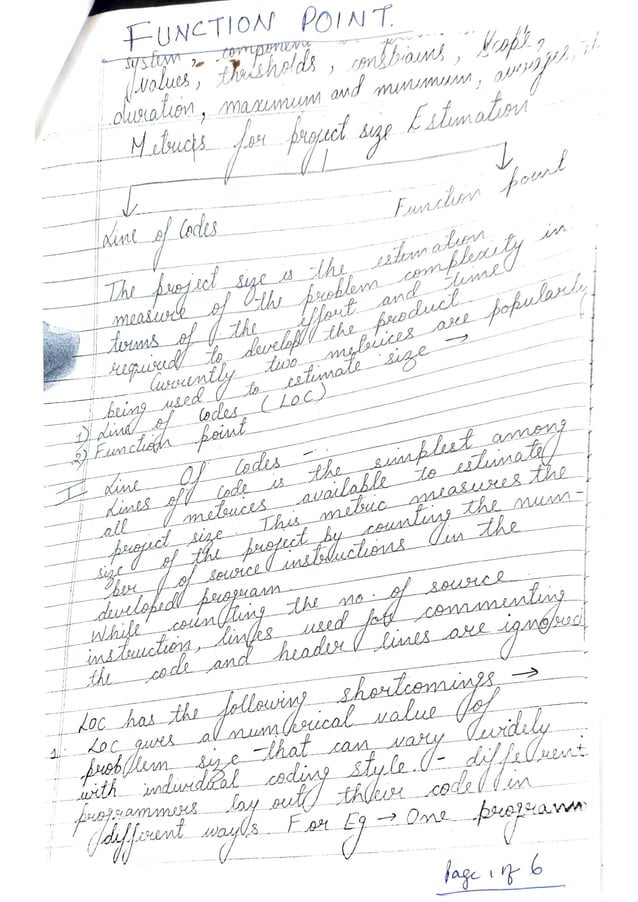 FUNCTION POINT.
system, component
values, thresholds, constrains, scope,
duration, maximum and minimum, averages,
Metrices for project size Estimation
Line of Codes Function point
The project size is the estimation
measure of the problem complexity in
terms of the effort and time
required to develop the product.
Currently two metrices are popularly
being used to estimate size →
1) Line of codes (LOC)
2) Function point
I Line Of codes -
Lines of code is the simplest among
all metrices available to estimate
project size. This metric measures the
size of the project by counting the num-
ber of source instructions in the
developed program.
While counting the no. of source
instruction, lines used for commenting
the code and header lines are ignored
LOC has the following shortcomings →
1. LOC gives a numerical value of
problem size that can vary widely
with individual coding style. - different
programmers lay out their code in
different ways. For Eg → One program
Page 1 of 6